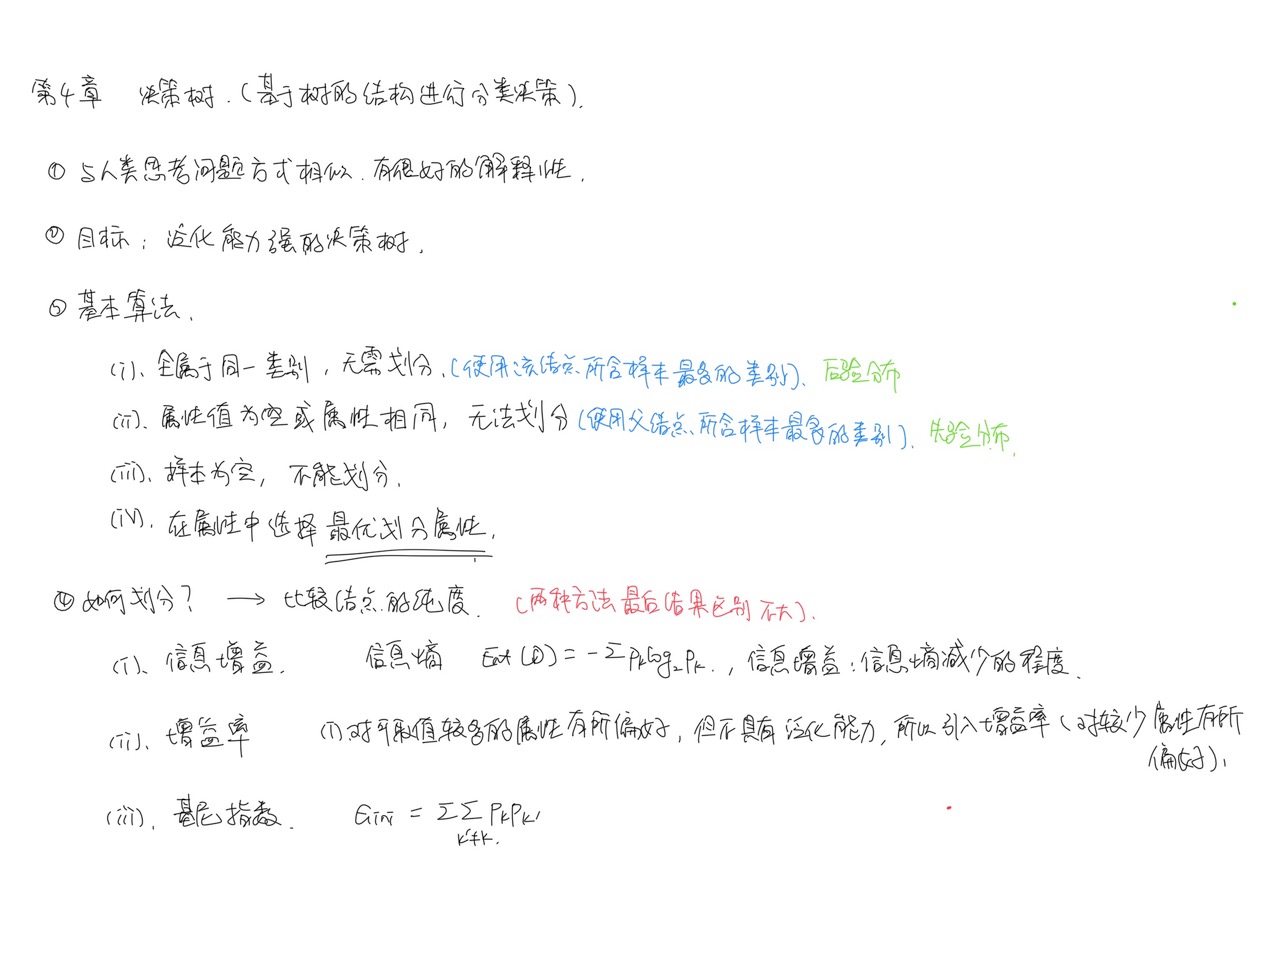 第4章 决策树.(基于树的结构进行分类决策).
① 与人类思考问题方式相似.有很好的解释性.
② 目标:泛化能力强的决策树.
③ 基本算法.
(i). 全属于同一类别,无需划分.(使用该结点所含样本最多的类别). 后验分布
(ii). 属性值为空或属性相同,无法划分(使用父结点所含样本最多的类别). 先验分布.
(iii). 样本为空,不能划分.
(iv). 在属性中选择最优划分属性.
④ 如何划分? → 比较结点的纯度. (两种方法最后结果区别不大).
(i). 信息增益. 信息熵 Ent(D)=-Σpₖlog₂pₖ. ,信息增益:信息熵减少的程度.
(ii). 增益率 (i)对取值较多的属性有所偏好,但不具有泛化能力,所以引入增益率(对较少属性有所
偏好).
(iii). 基尼指数. Gini = ΣΣ pₖpₖ′
k′≠k.